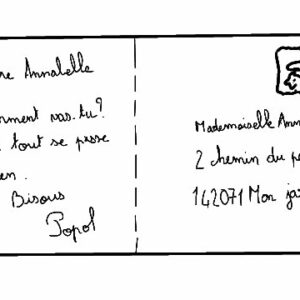 re Annabelle
mment vas-tu?
tout se passe
en.
Bisous
Popol
Mademoiselle Ann
2 chemin du pe
142071 Mon ja